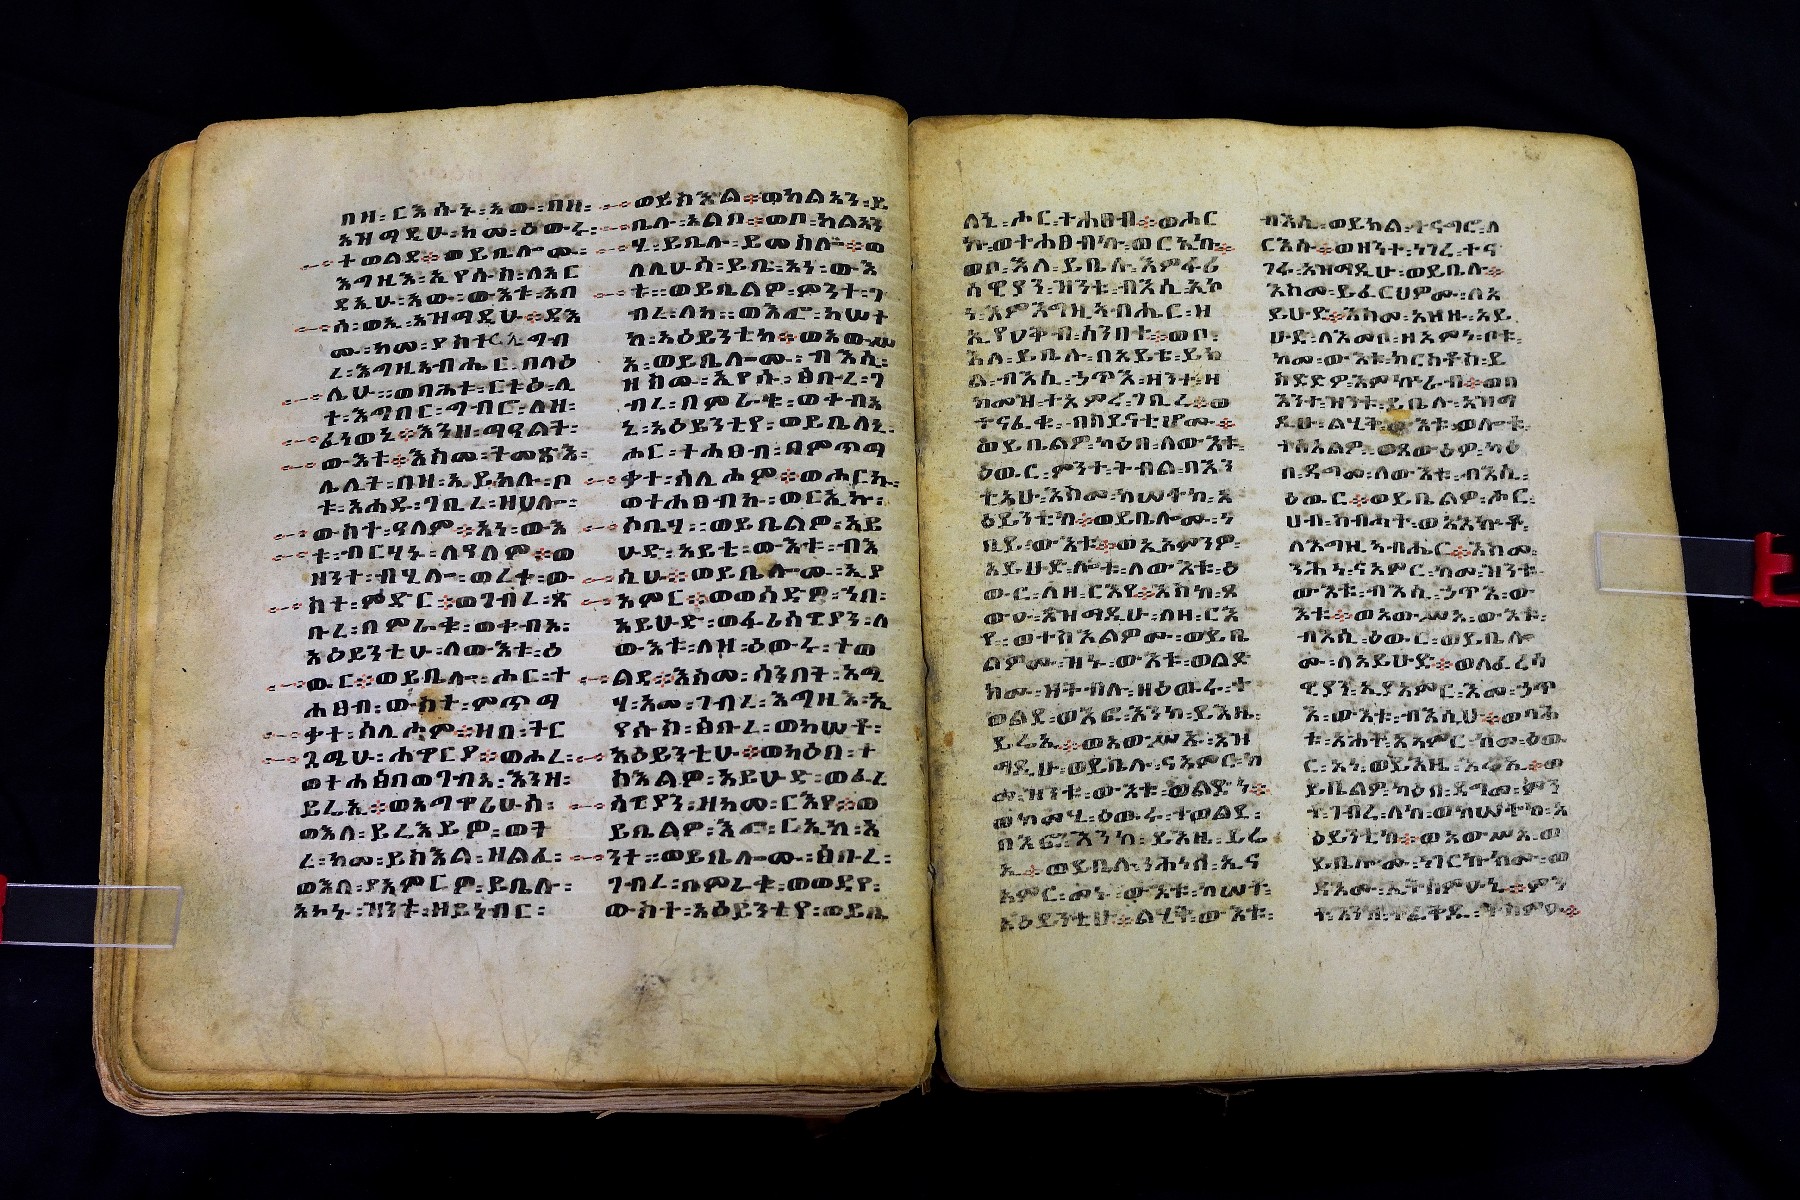 በዘ፡ርእሱኑ፡አው፡በዘ፡
አዝማዲሁ፡ከመ፡ዕውረ፡
ተወልደ፡ወይቤሎሙ፡
እግዚእ፡ኢየሱስ፡ለአር
ዳኢሁ፡አው፡ውእቱ፡አበ
ሰ፡ወኢ፡አዝማዲሁ፨ዳእ
ሙ፡ከመ፡ያስተርኢ፡ግብ
ረ፡እግዚአብሔር፡በላዕ
ሌሁ፡ወበሕቱ፡ርቱዕ፡ሊ
ተ፡እግበር፡ግብር፡ለዘ፡
ፈነወኒ፨እንዘ፡ማዓልት፡
ውእቱ፨እስመ፡ትመጽእ፡
ሌሊት፡በዘ፡ኢይክሉ፡ቦ
ቱ፡አሐዱ፡ገቢረ፡ዘሀሎ፡
ውስተ፡ዓለም፨አነ፡ውእ
ቱ፡ብርሃኑ፡ለዓለም፨ወ
ዘንተ፡ብሂሎ፡ወረቀ፡ው
ስተ፡ምድር፨ወገብረ፡ጸ
ቡረ፡በምራቁ፡ወቀብአ፡
አዕይንቲሁ፡ለውእቱ፡ዕ
ውር፨ወይቤሎ፡ሑር፡ተ
ሐፀብ፡ውስተ፡ምጥማ
ቃተ፡ሰሊሖም፨ዘበ፡ትር
ጓሜሁ፡ሐዋርያ፨ወሖረ፡
ወተሐፅበ፡ወገብአ፡እንዘ፡
ይሬኢ፨ወአግዋሪሁሰ፡
ወእለ፡ይሬእይዎ፡ወት
ረ፡ከመ፡ይስእል፡ዘልፈ፡
ወእለ፡ያአምርዎ፡ይቤሉ፡
አኮኑ፡ዝንቱ፡ዘይነብር፡
ወይስእል፨ወካልአን፡ይ
ቤሉ፡አልቦ፨ወቦ፡ካልአን
ሂ፡ይቤሉ፡ይመስሎ፨ወ
ለሊሁሰ፡ይቤ፡አነ፡ውእ
ቱ፡፡ወይቤልዎ፡ምንተ፡ገ
ብረ፡ለከ፡፡ወእፎ፡ከሠተ
ከ፡አዕይንቲከ፨ወአውሥ
አ፡ወይቤሎሙ፡ብእሲ፡
ዘስሙ፡ኢየሱስ፡ፀቡረ፡ገ
ብረ፡በምራቁ፡ወቀብአ
ኒ፡አዕይንቲየ፡ወይቤለኒ፡
ሑር፡ተሐፀብ፡በምጥማ
ቃተ፡ሰሊሖም፨ወሖርኩ፡
ወተሐፀብኩ፡ወርኢኩ፡
ሶቤሃ፡፡ወይቤልዎ፡አይ
ሁድ፡አይቴ፡ውእቱ፡ብእ
ሲሁ፨ወይቤሎሙ፡ኢያ
አምር፨ወወሰድዎ፡ኀበ፡
አይሁድ፡ወፈሪሳዊያን፡ለ
ውእቱ፡ለዘ፡ዕውሩ፡ተወ
ልደ፨እስመ፡ሰንበት፡እሚ
ሃ፡አመ፡ገብረ፡እግዚእ፡ኢ
የሱስ፡ፀቡረ፡ወከሠተ፡
አዕይንቲሁ፨ወካዕበ፡ተ
ስእልዎ፡አይሁድ፡ወፈሪ
ሳዊያን፡ዘከመ፡ርእየ፨ወ
ይቤልዎ፡እፎ፡ርኢከ፡አ
ንተ፡፡ወይቤሎሙ፡ፀቡረ፡
ገብረ፡በምራቁ፡ወወደየ፡
ውስተ፡አዕይንቲየ፡ወይቤ
ለኒ፡ሑር፡ተሐፀብ፨ወሖር
ኩ፡ወተሐፀብኩ፡ወርኢኩ፨
ወቦ፡እለ፡ይቤሉ፡እምፈሪ
ሳዊያን፡ዝንቱ፡ብእሲ፡ኢኮ
ነ፡እምእግዚአብሔር፡ዘ
ኢየዐቅብ፡ሰንበተ፡ወቦ፡
እለ፡ይቤሉ፡በአይቴ፡ይክ
ል፡ብእሲ፡ኃጥእ፡ዘንተ፡ዘ
ከመዝ፡ተአምረ፡ገቢረ፨ወ
ተናፈቁ፡በበይናቲሆሙ፨
ወይቤልዎ፡ካዕበ፡ለውእቱ፡
ዕውር፡ምንተ፡ትብል፡በእን
ቲአሁ፡እስመ፡ከሠተከ፡አ
ዕይንቲከ፨ወይቤሎሙ፡ነ
ቢይ፡ውእቱ፨ወኢአምንዎ፡
አይሁድ፡ሎቱ፡ለውእቱ፡ዕ
ውር፡ለዘ፡ርእየ፨እስከ፡ጸ
ውዑ፡አዝማዲሁ፡ለዘ፡ርእ
የ፡ወተስእልዎሙ፡ወይቤ
ልዎሙ፡ዝኑ፡ውእቱ፡ወልድ
ክሙ፡ዘትብሉ፡ዘዕውሩ፡ተ
ወልደ፡ወእፎ፡እንከ፡ይእዜ፡
ይሬኢ፨ወአውሥኡ፡አዝ
ማዲሁ፡ወይቤሉ፡ናአምር፡ከ
መ፡ዝንቱ፡ውእቱ፡ወልድነ፨
ወከመሂ፡ዕውሩ፡ተወልደ፡
በእፎ፡እንከ፡ይእዜ፡ይሬ
ኢ፨ወይቤሉ፡ንሕነሰ፡ኢና
አምር፡መኑ፡ውእቱ፡ከሠተ፡
አዕይንቲሁ፨ልሂቅ፡ውእቱ፡
ብእሲ፡ወይክል፡ተናግሮ፡ለ
ርእሱ፨ወዘንተ፡ነገረ፡ተና
ገሩ፡አዝማዲሁ፡ወይቤሉ፨
እስመ፡ይፈርህዎሙ፡ለአ
ይሁድ፨እስመ፡አዘዙ፡አይ
ሁድ፡ለእመቦ፡ዘአምነ፡ቦቱ፡
ከመ፡ውእቱ፡ክርስቶስ፡ይ
ስድድዎ፡እምኵራብ፨ወበ
እንተ፡ዝንቱ፡ይቤሉ፡አዝማ
ዲሁ፡ልሂቅ፡ውእቱ፡ወሎቱ፡
ተስእልዎ፡ወጸውዕዎ፡ካዕ
በ፡ዳግመ፡ለውእቱ፡ብእሲ፡
ዕውር፨ወይቤልዎ፡ሑር፡
ሀብ፡ስብሐተ፡ወአእኵቶ፡
ለእግዚአብሔር፨እስመ፡
ንሕነ፡ናአምር፡ከመ፡ዝንቱ፡
ውእቱ፡ብእሲ፡ኃጥእ፡ው
እቱ፨ወአውሥአ፡ውእቱ፡
ብእሲ፡ዕውር፡ወይቤሎ
ሙ፡ለአይሁድ፨ወለፈሪሳ
ዊያን፡ኢያአምር፡እመ፡ኃጥ
እ፡ውእቱ፡ብእሲሁ፨ወባሕ
ቱ፡አሐተ፡አአምር፡ከመ፡ዕው
ር፡አነ፡ወይእዜ፡እሬኢ፨ወ
ይቤልዎ፡ካዕበ፡ዳግመ፡ምን
ተ፡ገብረ፡ለከ፡ወከሠተከ፡አ
ዕይንቲከ፨ወአውሥአ፡ወ
ይቤሎሙ፡ነገርኩክሙ፡ወ
ድእሙ፡ኢትሰምዑኒ፨ምን
ተ፡እንከ፡ትፈቅዱ፡ትስምዑ፨